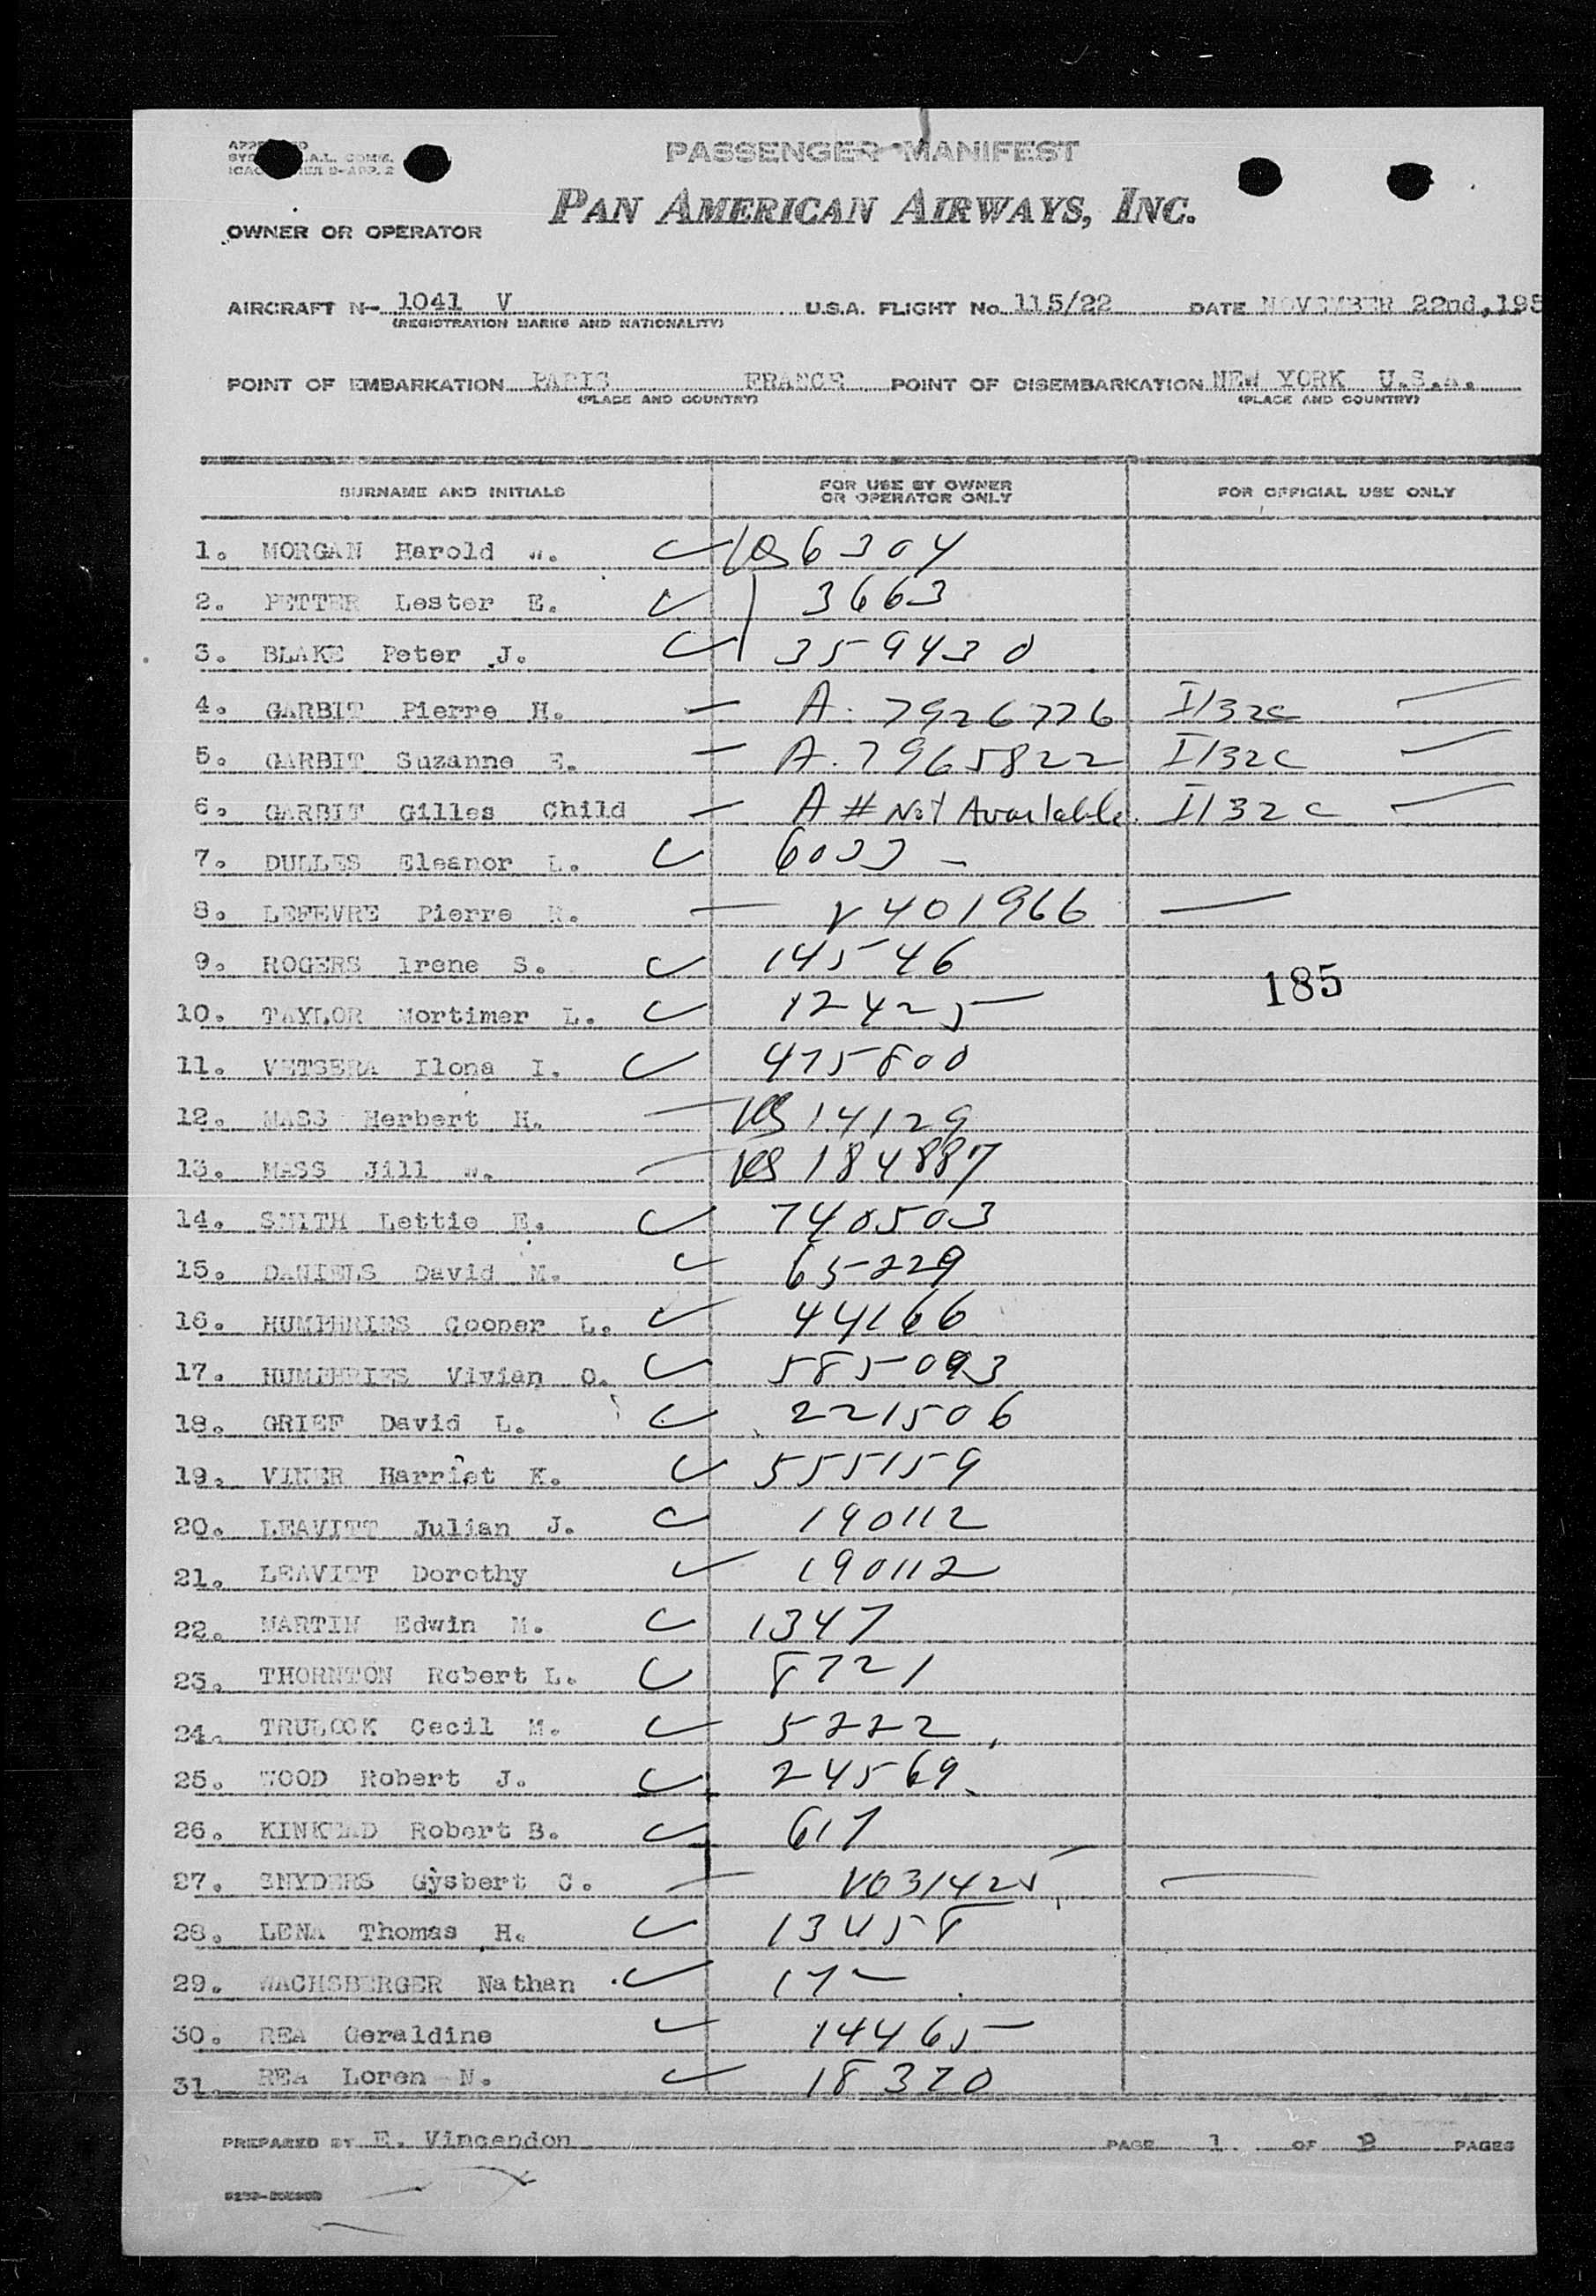 PASSENGER MANIFEST
PAN AMERICAN AIRWAYS, INC.
OWNER OR OPERATOR
AIRCRAFT N- 1041 V U.S.A. FLIGHT No. 115/22 DATE NOVEMBER 22nd, 195
(REGISTRATION MARKS AND NATIONALITY)
POINT OF EMBARKATION PARIS FRANCE POINT OF DISEMBARKATION NEW YORK U.S.A.
(PLACE AND COUNTRY) (PLACE AND COUNTRY)
SURNAME AND INITIALS FOR USE BY OWNER OR OPERATOR ONLY FOR OFFICIAL USE ONLY
1. MORGAN Harold W. 6304
2. PETTER Lester E. 3663
3. BLAKE Peter J. 359430
4. GARBIT Pierre H. A. 7926776 I/32c
5. GARBIT Suzanne E. A. 7965822 I/32c
6. GARBIT Gilles Child A # Not Available I/32c
7. DULLES Eleanor L. 6033
8. LEFEVRE Pierre R. V 401966
9. ROGERS Irene S. 14546
185
10. TAYLOR Mortimer L. 12425
11. VETSERA Ilona I. 475800
12. MASS Herbert H. 14129
13. MASS Jill W. 184887
14. SMITH Lettie E. 740503
15. DANIELS David M. 65229
16. HUMPHRIES Cooper L. 44166
17. HUMPHRIES Vivian O. 585093
18. GRIEF David L. 221506
19. VINER Harriet K. 555159
20. LEAVITT Julian J. 190112
21. LEAVITT Dorothy 190112
22. MARTIN Edwin M. 1347
23. THORNTON Robert L. 8721
24. TRULOCK Cecil M. 5222
25. WOOD Robert J. 24569
26. KINKEAD Robert B. 617
27. SNYDERS Gysbert C. V031425
28. LENA Thomas H. 13458
29. WACHSBERGER Nathan 172
30. REA Geraldine 14465
31. REA Loren N. 18320
PREPARED BY E. Vincendon PAGE 1 OF PAGES